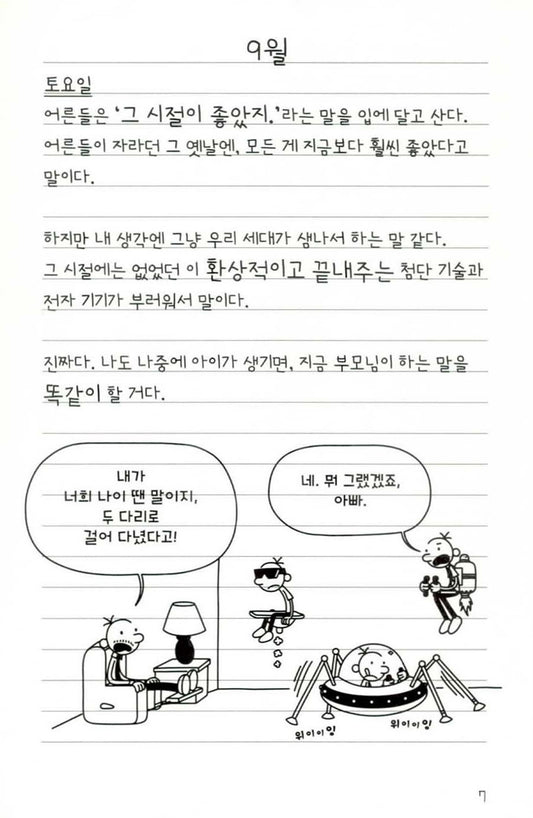 9월
토요일
어른들은 '그 시절이 좋았지.'라는 말을 입에 달고 산다.
어른들이 자라던 그 옛날엔, 모든 게 지금보다 훨씬 좋았다고
말이다.
하지만 내 생각엔 그냥 우리 세대가 샘나서 하는 말 같다.
그 시절에는 없었던 이 환상적이고 끝내주는 첨단 기술과
전자 기기가 부러워서 말이다.
진짜다. 나도 나중에 아이가 생기면, 지금 부모님이 하는 말을
똑같이 할 거다.
내가
너희 나이 땐 말이지,
두 다리로
걸어 다녔다고!
네. 뭐 그랬겠죠,
아빠.
위이이잉
위이이잉
7